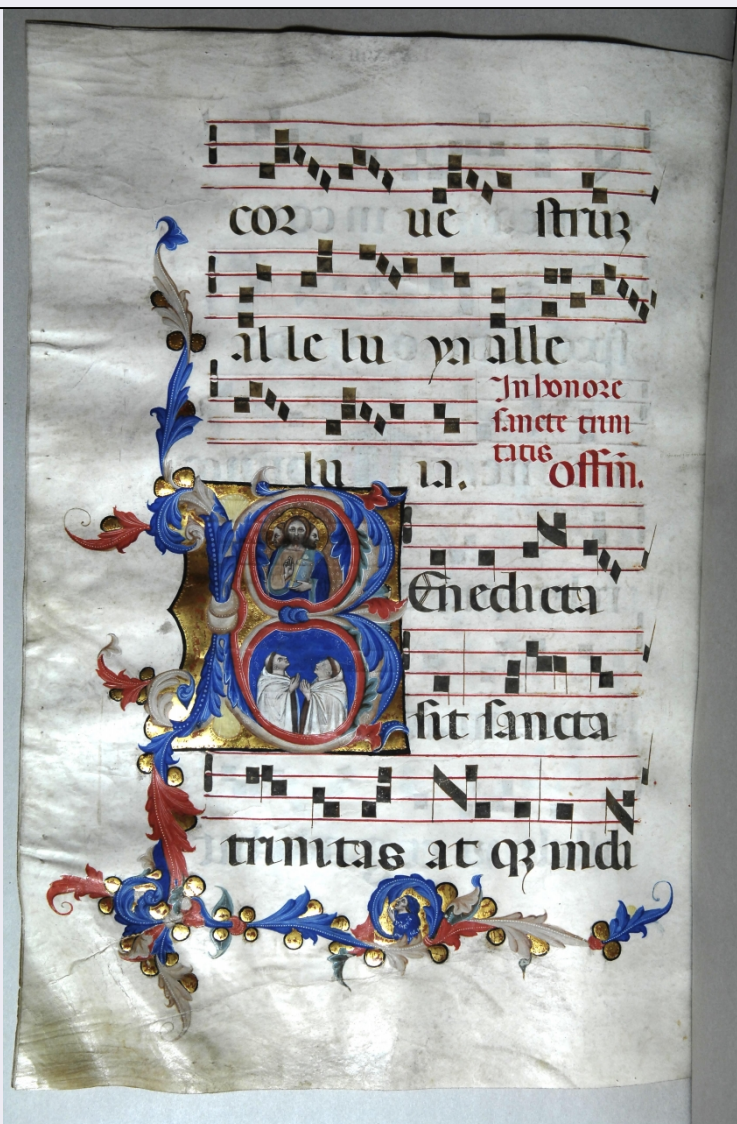 cor ue strum
al le lu ya alle
In honore
sancte trini
tatis
lu ia. offm̄.
BEnedicta
sit sancta
trinitas at qꝫ indi